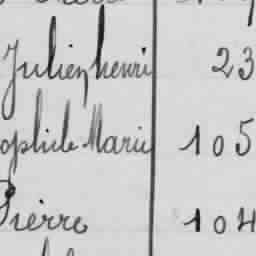 Julien henri 23
ophile Marie 105
Pierre 104